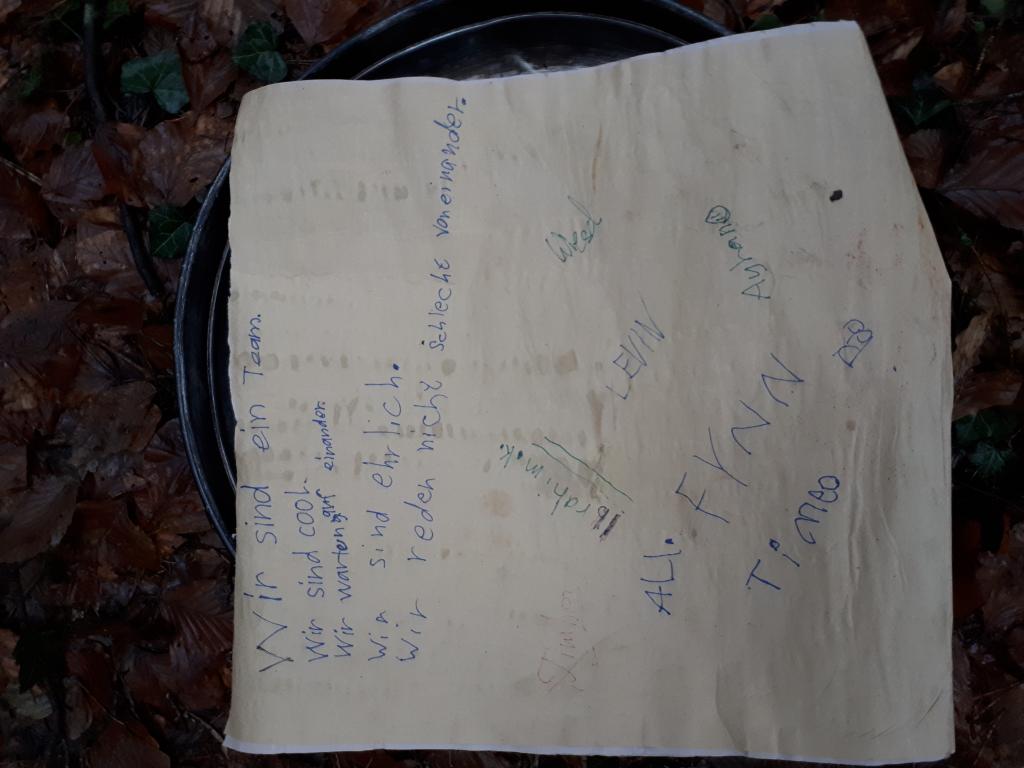 Wir sind ein Team.
Wir sind cool.
Wir warten auf einander.
Wir sind ehrlich.
Wir reden nicht Schlecht voneinander.
Ibrahim.k.
LEVIN
ALI.
FYNN
Ayhan
Timeo